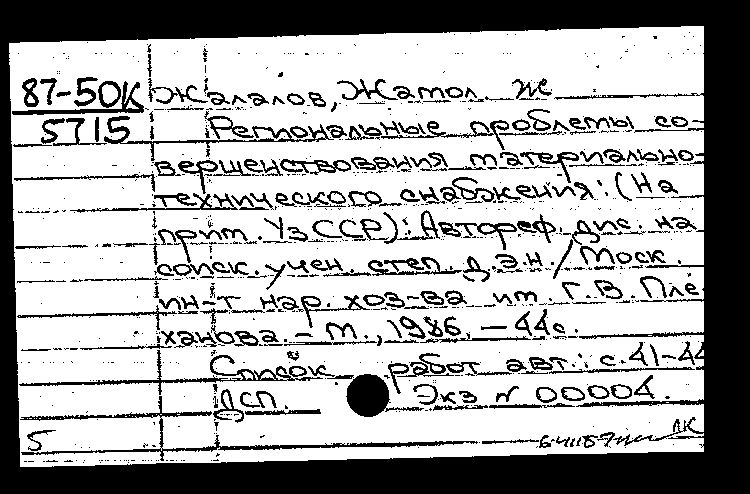 87-50К Жалалов, Жамол. Ж
5715 Региональные проблемы со-
вершенствования материально-
технического снабжения: (На
прим. УзССР): Автореф. дис. на
соиск. учен. степ. д.э.н. / Моск.
ин-т нар. хоз-ва им. Г.В. Пле
ханова. – М., 1986. – 44с.
Список работ авт.: с. 41-44
ДСП. Экз № 00004.
5 ЛК